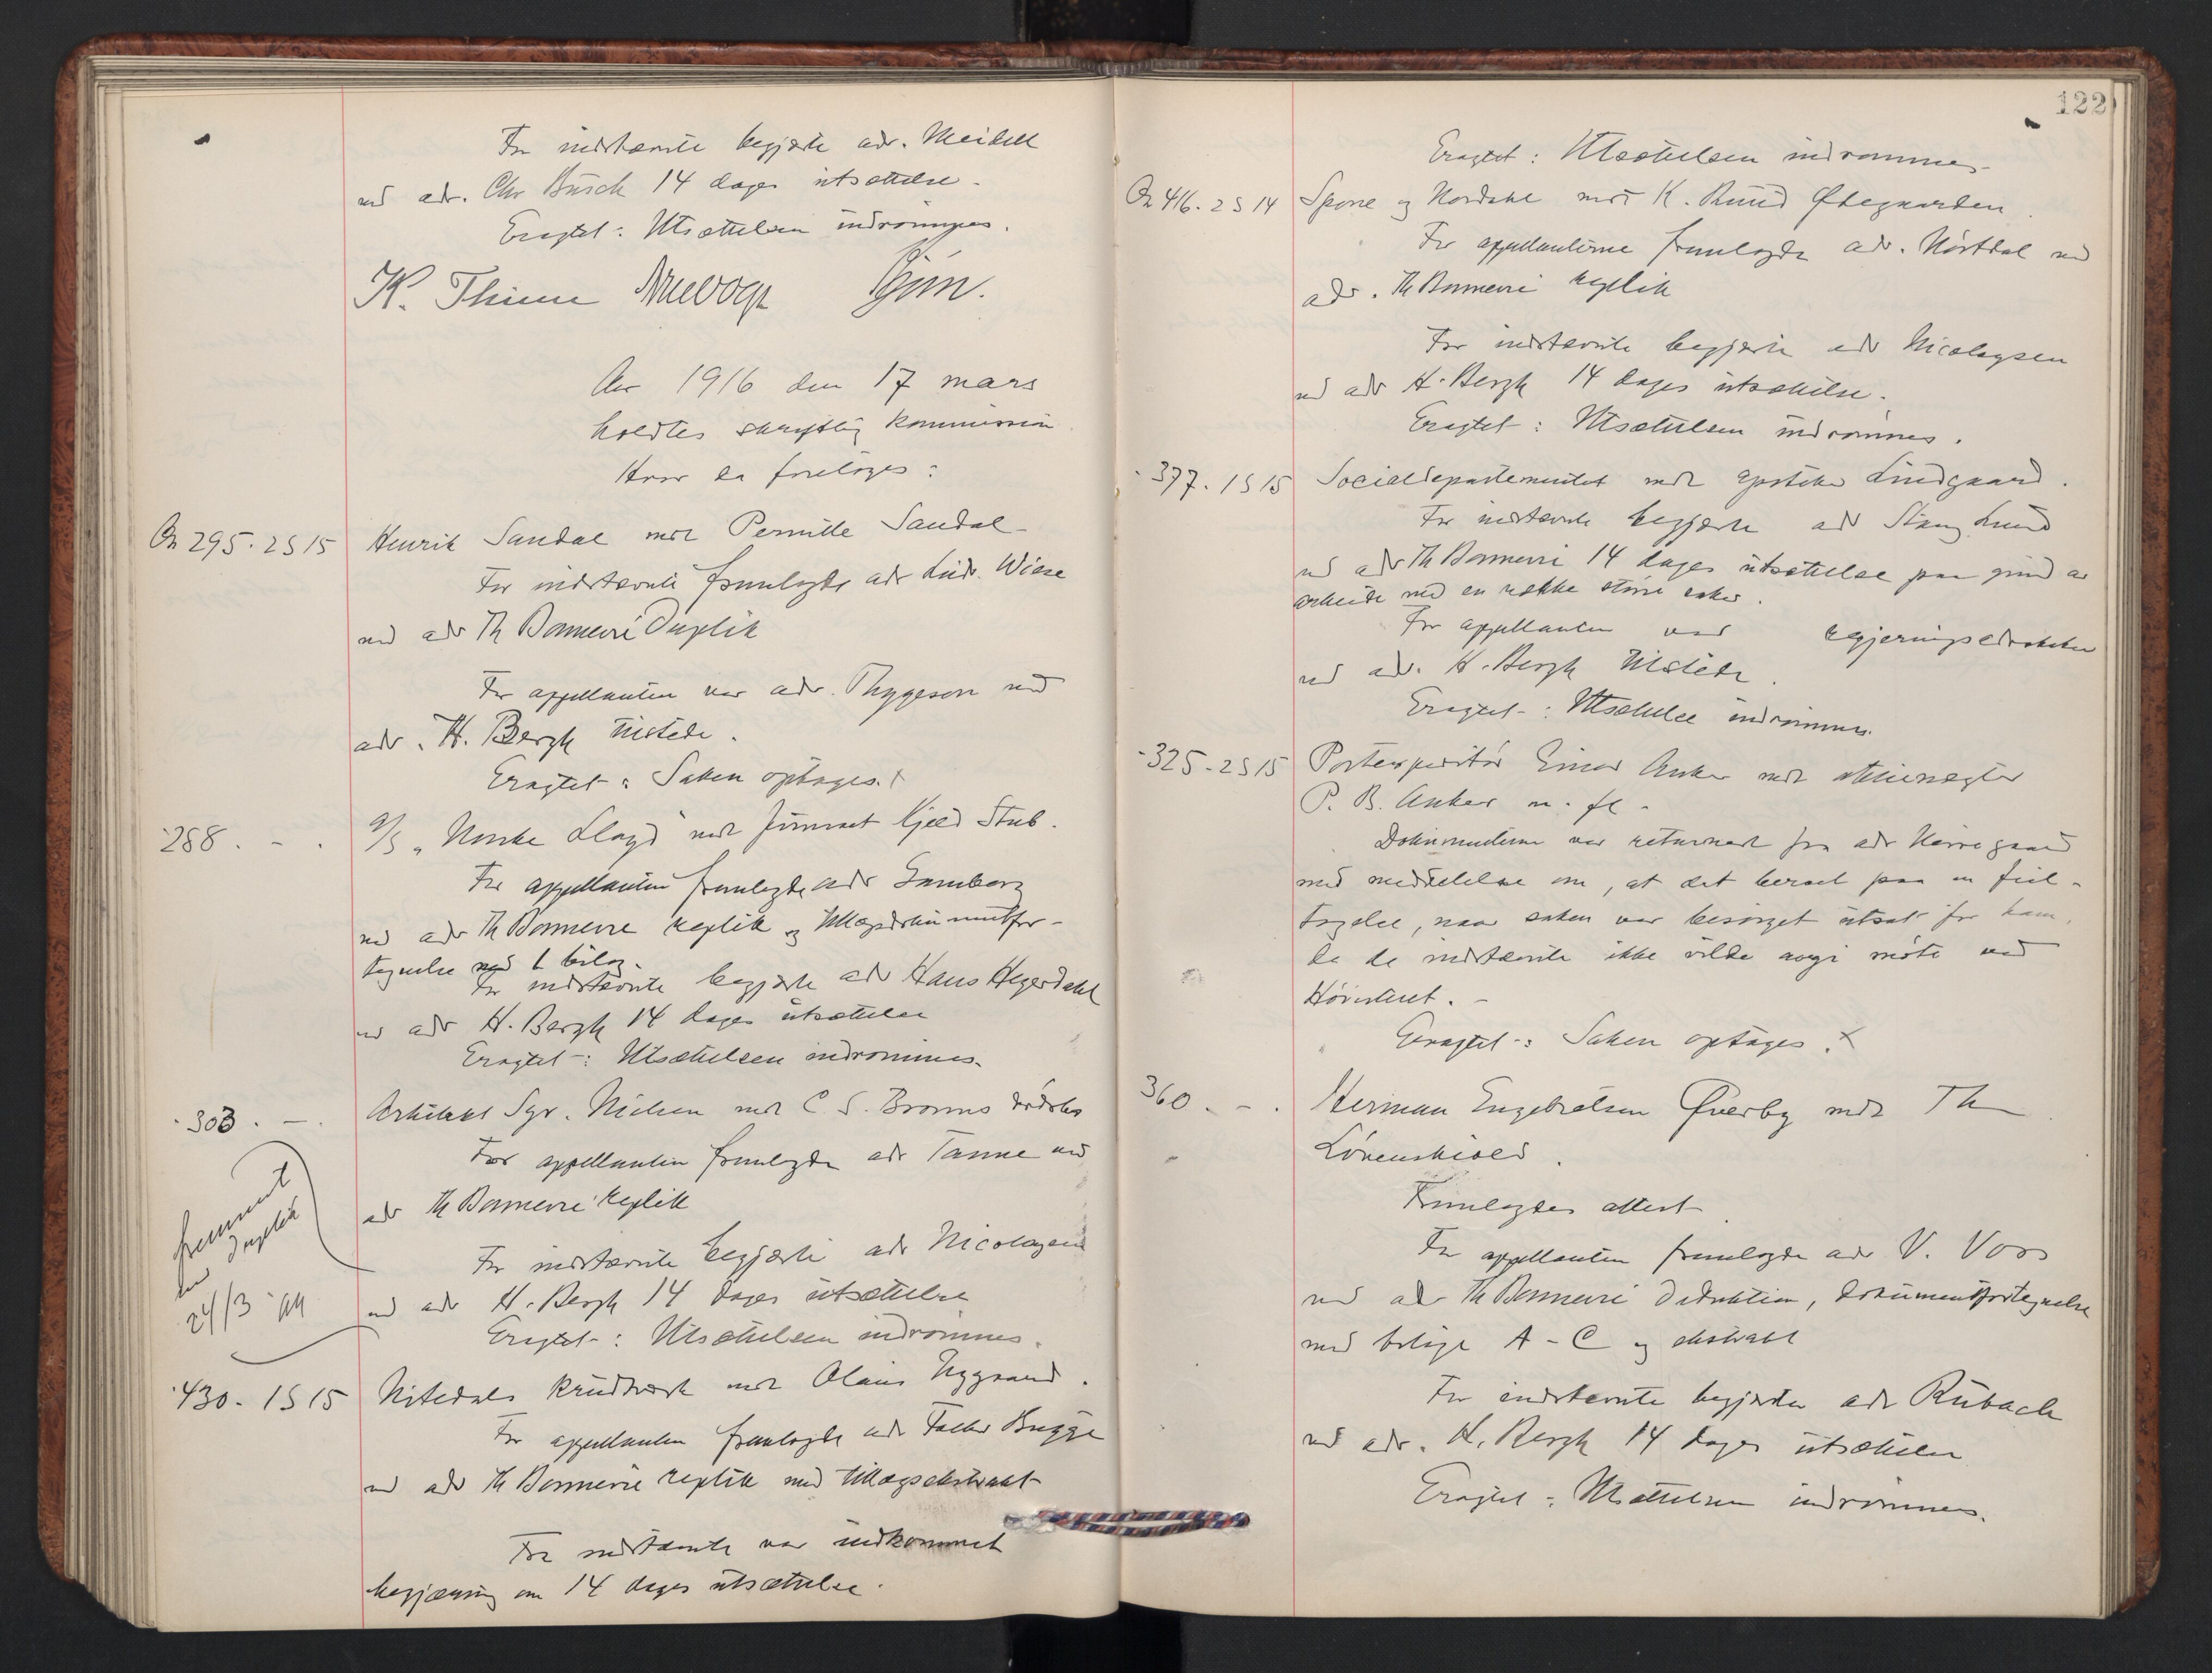 For indstævnte begjærte adv. Meidell
ved adv. Chr Busch 14 dages utsættelse.
Eragtet: Utsættelsen indrømmes.
K. Thinn
Aar 1916 den 17 mars
holdtes skriftlig kommission
Hvor da foretoges:
Or 295. 2 S 15 Henrik Sandal mot Pernille Sandal
For indstævnte fremlagde adv Ludv. Wiese
ved adv Th Bonnevie Duplik
For appellanten var adv. Thygeson ved
adv. H. Bergh tilstede.
Eragtet: Saken optages.
288. - . A/S "Norske Lloyd" mot Kjeld Stub.
For appellanten fremlagde adv
ved adv Th Bonnevie replik og tillægsdokumentfor-
tegnelse med 1 bilag.
For indstævnte begjærte adv Hans Hegerdahl
ved adv H. Bergh 14 dages utsættelse
Eragtet: Utsættelsen indrømmes.
303. - . Arkitekt Sgr. Nielsen mot C. S. Bronns dødsbo
For appellanten fremlagde adv Tanne ved
adv Th Bonnevie replik
For indstævnte begjærte adv Nicolaysen
ved adv H. Bergh 14 dages utsættelse
Eragtet: Utsættelsen indrømmes.
fremmet
duplik
24/3
430. 1 S 15 Nitedals Krudtværk mot Olaus Nygaard.
For appellanten fremlagde adv Falck Bugge
ved adv Th Bonnevie replik med tillægsekstrakt
For indstævnte var indkommet
begjæring om 14 dages utsættelse.
122
Eragtet: Utsættelsen indrømmes.
Or 416. 2 S 14 Spone og Nordahl mot K. Ruud Øhegaarden.
For appellanterne fremlagde adv. Hørtdal ved
adv. Th Bonnevie replik
For indstævnte begjærte adv Nicolaysen
ved adv H. Bergh 14 dages utsættelse.
Eragtet: Utsættelsen indrømmes.
377. 1 S 15 Socialdepartementet mot apoteker Lindgaard.
For indstævnte begjærte adv Stang Lund
ved adv Th Bonnevie 14 dages utsættelse paa grund av
arbeide med en række større saker.
For appellanten var regjeringsadvokaten
ved adv. H. Bergh tilstede.
Eragtet: Utsættelse indrømmes.
325. 2 S 15 Postexpeditør Einar Anker mot
P. B. Anker m. fl.
Dokumenterne var returnert fra adv Nørregaard
med meddelelse om, at det beroet paa en feil-
tagelse, naar saken var besørget utsat for ham,
da de indstævnte ikke vilde avgi møte ved
Høiesteret. -
Eragtet: Saken optages.
360. - . Herman Engebretsen Øverby mot Th
Løvenskiold.
Fremlagdes attest
For appellanten fremlagde adv V. Voss
ved adv Th Bonnevie deduktion, dokumentfortegnelse
med bilage A - C og ekstrakt
For indstævnte begjærte adv Rubach
ved adv. H. Bergh 14 dages utsættelse
Eragtet: Utsættelsen indrømmes.